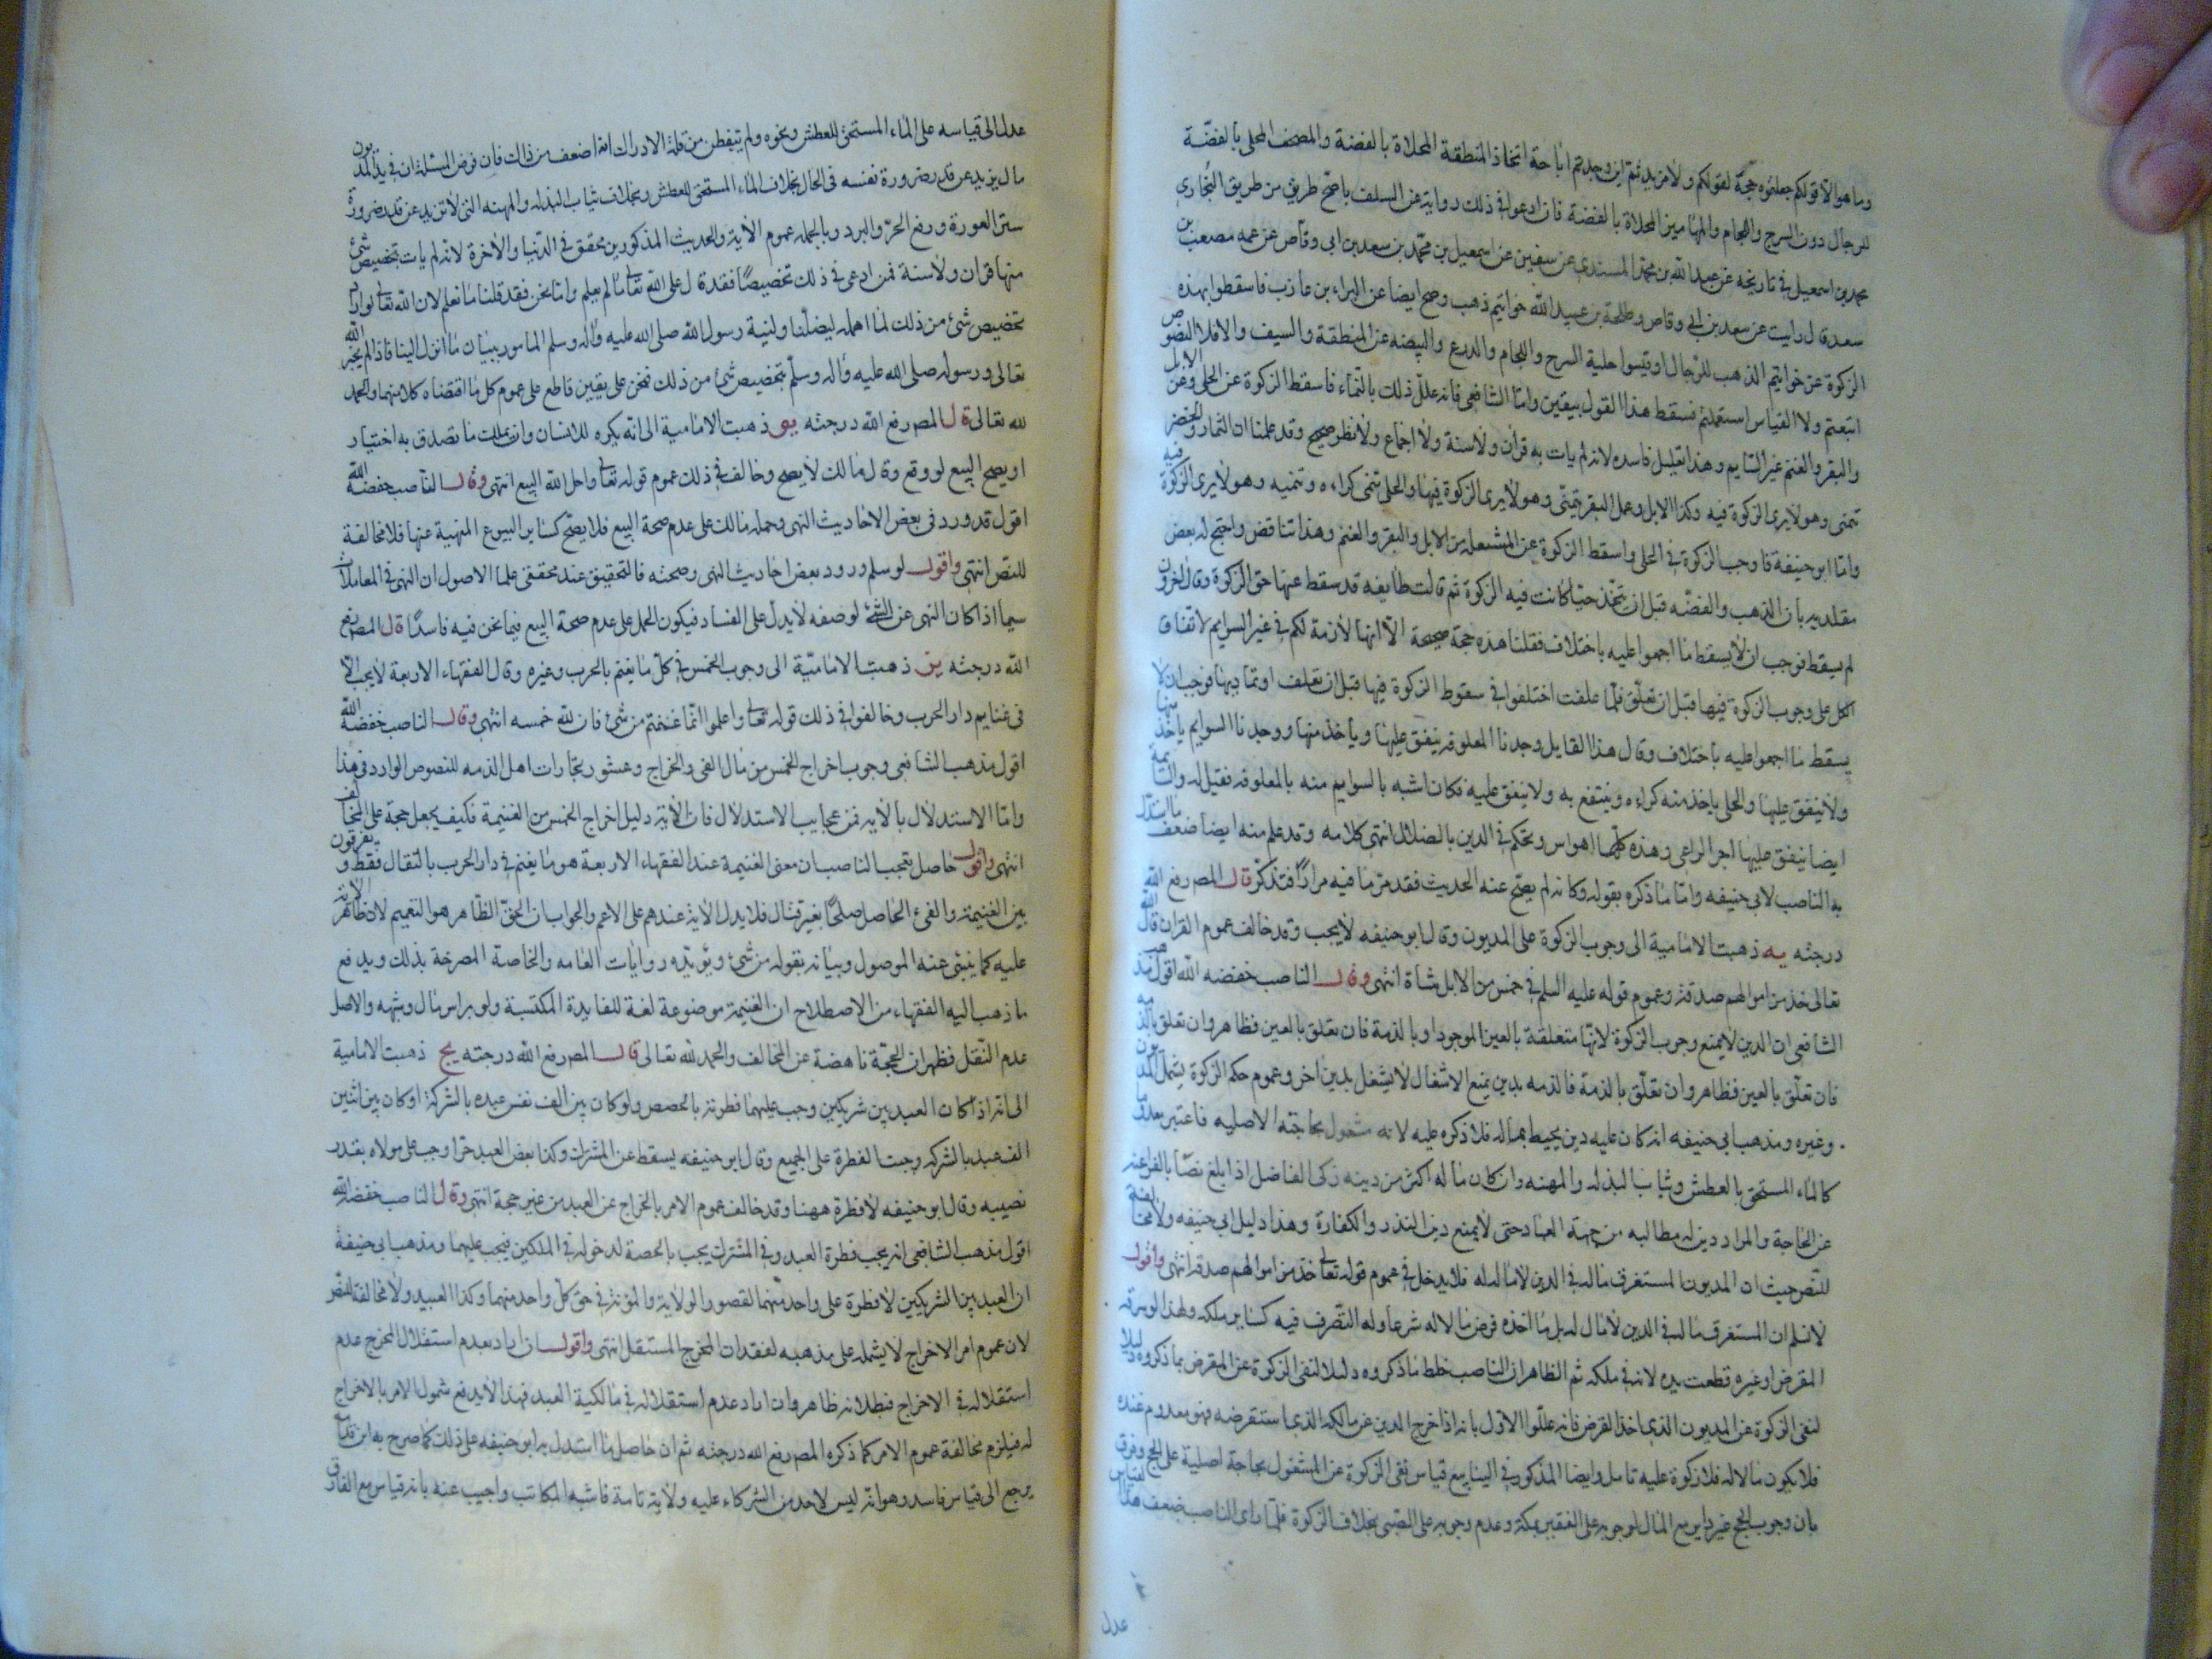 وما هو الا قولكم جعلتموه حجة لقولكم ولا مزيد ثم اين وجدتم اباحة اتخاذ المنطقة المحلاة بالفضة والمصحف المحلى بالفضة
للرجال دون السرج واللجام والمهاميز المحلاة بالفضة فان ادعوا في ذلك رواية عن السلف باصح طريق من طريق البخارى
محمد بن اسمعيل في تاريخه عن عبد الله بن محمد المسندى عن سفين عن اسمعيل بن محمد بن سعد بن ابى وقاص عن عمه مصعب بن
سعد قال رايت عن سعد بن ابى وقاص وطلحة بن عبيد الله خواتيم ذهب وصح ايضا عن البراء بن عازب فاسقطوا بهذه
الزكوة عن خواتيم الذهب للرجال او قيسوا حلية السرج واللجام والدرع والبيضه عن المنطقة والسيف والا فلا النصوص
اتبعتم ولا القياس استعملتم فسقط هذا القول بيقين واما الشافعى فانه علل ذلك بالنماء فاسقط الزكوة عن الحلى وعن الابل
والبقر والغنم غير السايم وهذا تعليل فاسد لانه لم يات به قران ولا سنة ولا اجماع ولا نظر صحيح وقد علمنا ان الثمار والخضر
تنمى وهو لا يرى الزكوة فيه وكذا الابل وعمل البقر تنمى وهو لا يرى الزكوة فيها والحلى تنمى كراءه وتنميه وهو لا يرى الزكوة فيه
واما ابو حنيفة فاوجب الزكوة في الحلى واسقط الزكوة عن المستعمله من الابل والبقر والغنم وهذا تناقض واحتج له بعض
مقلديه بان الذهب والفضه قبل ان يتخذ حليا كانت فيه الزكوة ثم قالت طايفه قد سقط عنها حق الزكوة وقال اخرون
لم يسقط فوجب ان لا يسقط ما اجمعوا عليه باختلاف فقلنا هذه حجة صحيحة الا انها لازمة لكم في غير السوايم لاتفاق
الكل على وجوب الزكوة فيها قبل ان تعلق فلما علفت اختلفوا في سقوط الزكوة فيها قبل ان تعلف فوجب ان لا
يسقط ما اجمعوا عليه باختلاف وقال هذا القايل وجدنا المعلوفه ينفق عليها وياخذ منها ووجدنا السوايم ياخذ منها
ولا ينفق عليها والحلى ياخذ منه كراءه وينتفع به ولا ينفق عليه فكان اشبه بالسوايم منه بالمعلوفه فقيل له والسايمة
ايضا ينفق عليها اجر الراعى وهذه كلها اهواس وتحكم في الدين بالضلال انتهى كلامه وقد علم منه ايضا ضعف ما استدل
به الناصب لابى حنيفه واما ما ذكره بقوله وكانه لم يصح عنه الحديث فقد مر ما فيه مرارا فتذكر قال المصر رفع الله
درجته يه ذهبت الامامية الى وجوب الزكوة على المديون وقال ابو حنيفه لا يجب وقد خالف عموم القران قال الله
تعالى خذ من اموالهم صدقة وعموم قوله عليه السلم في خمس من الابل شاة انتهى وقال الناصب خفضه الله اقول مذهب
الشافعى ان الدين لا يمنع وجوب الزكوة لانها متعلقة بالعين الموجود او بالذمة فان تعلق بالعين فظاهر وان تعلق بالذمه
فان تعلق بالعين فظاهر وان تعلق بالذمة فالذمه بدين يمنع الاشغال لا يشغل بدين اخر وعموم حكم الزكوة يشمل المديون
وغيره ومذهب ابى حنيفه انه كان عليه دين يحيط بماله فلا ذكره عليه لانه مشغول بحاجته الاصليه فاعتبر معدوما
كالماء المستحق بالعطش وثياب البذله والمهنه وان كان ماله اكثر من دينه زكى الفاضل اذا بلغ نصابا بالفراغه
عن الحاجة والمراد دين له مطالبه من جهة العباد حتى لا يمنع دين النذر والكفارة وهذا دليل ابى حنيفه ولا مخالفة
للنص حيث ان المديون المستغرق ماله في الدين لا مال له فلا يدخل في عموم قوله تعالى خذ من اموالهم صدقة انتهى واقول
لا نسلم ان المستغرق ماله في الدين لا مال له بل ما اخذه قرض ماله شرعا وله التصرف فيه كساير ملكه ولهذا لو سرقه
المقرض او غيره قطعت يده لانه في ملكه ثم الظاهر ان الناصب خلط ما ذكروه دليلا لنفى الزكوة عن المقرض بما ذكروه دليلا
لنفى الزكوة عن المديون الذى اخذ القرض فانه عللوا الاول بانه اذا خرج الدين عن مالكه الذى استقرضه فهو معدوم عنده
فلا يكون مالا له فلا زكوة عليه تامل وايضا المذكور في الينابيع قياس نفى الزكوة عن المشغول بحاجة اصلية على الحج وفرق
بان وجوب الحج غير داير مع المال لوجوبه على الفقير بمكة وعدم وجوبه على الصبى بخلاف الزكوة فلما راى الناصب ضعف هذا القياس
عدل
عدل الى قياسه على الماء المستحق للعطش ونحوه ولم يتفطن من قلة الادراك انه اضعف من ذاك فان فرض المسئلة ان في يد المديون
مال يزيد عن قدر ضرورة نفسه في الحال بخلاف الماء المستحق للعطش وبخلاف ثياب البذله والمهنه التى لا تزيد عن قدر ضرورة
ستر العورة ورفع الحر والبرد وبالجملة عموم الاية والحديث المذكورين محقق في الدنيا والاخرة لانه لم يات بتخصيص شئ
منها قران ولا سنة فمن ادعى في ذلك تخصيصا فقد قال على الله تعالى ما لم يعلم واما نحن فقد قلنا ما نعلم لان الله تعالى لو اراد
تخصيص شئ من ذلك لما اهمله ليضلنا ولبينه رسول الله صلى الله عليه واله وسلم المامور ببيان ما انزل الينا فاذا لم يخبر الله
تعالى ورسوله صلى الله عليه واله وسلم بتخصيص شئ من ذلك فنحن على يقين قاطع على عموم كل ما اقتضاه كلامهما والحمد
لله تعالى قال المصر رفع الله درجته يو ذهبت الامامية الى انه يكره للانسان وان يملك ما تصدق به اختيار
او يصح البيع لو وقع وقال مالك لا يصح وخالف في ذلك عموم قوله تعالى واحل الله البيع انتهى وقال الناصب خفضه الله
اقول قد ورد في بعض الاحاديث النهى وحمله مالك على عدم صحة البيع فلا يصح كساير البيوع المنهية عنها فلا مخالفة
للنص انتهى واقول لو سلم ورود بعض احاديث النهى وصحته فالتحقيق عند محققى علما الاصول ان النهى في المعاملات
سيما اذا كان النهى عن الشئ لوصفه لا يدل على الفساد فيكون الحمل على عدم صحة البيع فيما نحن فيه فاسدا قال المصر رفع
الله درجته يز ذهبت الامامية الى وجوب الخمس في كل ما يغنم بالحرب وغيره وقال الفقهاء الاربعة لا يجب الا
في غنايم دار الحرب وخالفوا في ذلك قوله تعالى واعلموا انما غنمتم من شئ فان لله خمسه انتهى وقال الناصب خفضه الله
اقول مذهب الشافعى وجوب اخراج الخمس من مال الفئ والخراج وعشور تجارات اهل الذمه للنصوص الوارد في هذا
واما الاستدلال بالايه فمن عجايب الاستدلال فان الاية دليل اخراج الخمس من الغنيمة فكيف يجعل حجة على المخالف
انتهى واقول حاصل تعجب الناصب ان معنى الغنيمة عند الفقهاء الاربعة هو ما يغنم في دار الحرب بالقتال فقط ويفرقون
بين الغنيمة والفئ الحاصل صلحا بغير قتال فلا يدل الاية عندهم على الاعم والجواب ان الحق الظاهر هو التعميم لدلالة ظاهر الاية
عليه كما ينبئ عنه الموصول وبيانه بقوله من شئ ويؤيده روايات العامه والخاصة المصرحة بذلك ويدفع
ما ذهب اليه الفقهاء من الاصطلاح ان الغنيمة موضوعة لغة للفايدة المكتسبة ولو براس مال وشبهه والاصل
عدم النقل فظهر ان الحجة ناهضة عن المخالف والحمد لله تعالى قال المصر رفع الله درجته يح ذهبت الامامية
الى انه اذا كان العبد بين شريكين وجب عليهما فطرته بالحصص ولو كان بين الف نفس عبده بالشركة او كان بين اثنين
الف عبد بالشركه وجبت الفطرة على الجميع وقال ابو حنيفه يسقط عن المشترك وكذا بعض العبد حرا وجب على مولاه بقدر
نصيبه وقال ابو حنيفه لا فطرة ههنا وقد خالف عموم الامر بالخراج عن العبد من غير حجة انتهى وقال الناصب خفضه الله
اقول مذهب الشافعى انه يجب فطرة العبد وفي المشترك يجب بالحصة لدخوله في الملكين فيجب عليهما ومذهب ابى حنيفة
ان العبد بين الشريكين لا فطرة على واحد منهما لقصور الولاية والمؤنة في حق كل واحد منهما وكذا العبيد ولا مخالفة للنص
لان عموم امر الاخراج لا يشمله على مذهبه لفقدان المخرج المستقل انتهى واقول ان اراد بعدم استقلال المخرج عدم
استقلاله في الاخراج فبطلانه ظاهر وان اراد عدم استقلاله في مالكية العبد فهذا لا يدفع شمول الامر بالاخراج
له فيلزم مخالفة عموم الامر كما ذكره المصر رفع الله درجته ثم ان حاصل ما استدل به ابو حنيفه على ذلك كما صرح به
يرجع الى قياس فاسد وهو انه ليس لاحد من الشركاء عليه ولاية تامة فاشبه المكاتب واجيب عنه بانه قياس مع الفارق